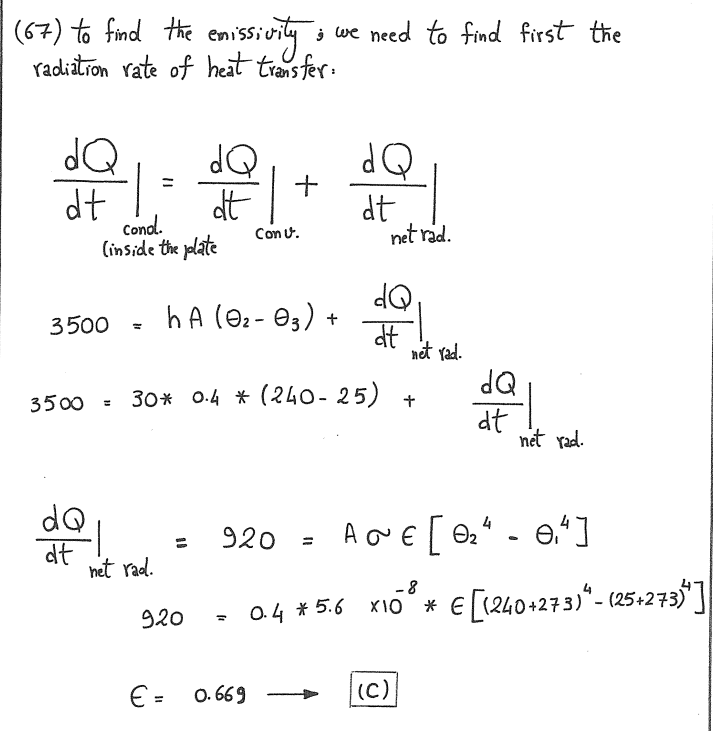 (67) to find the emissivity ; we need to find first the
radiation rate of heat transfer:
dQ/dt | cond. (inside the plate = dQ/dt | conv. + dQ/dt | net rad.
3500 = h A (θ₂ - θ₃) + dQ/dt | net rad.
3500 = 30* 0.4 * (240 - 25) + dQ/dt | net rad.
dQ/dt | net rad. = 920 = A σ ϵ [ θ₂⁴ - θ₁⁴ ]
920 = 0.4 * 5.6 x10⁻⁸ * ϵ [(240+273)⁴ - (25+273)⁴]
ϵ = 0.669 → (C)